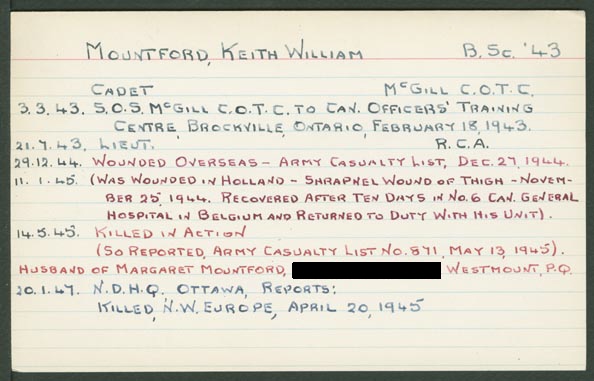 MOUNTFORD, KEITH WILLIAM B.Sc. '43
CADET McGILL C.O.T.C.
3.3.43. S.O.S. McGILL C.O.T.C. TO CAN. OFFICERS' TRAINING
CENTRE, BROCKVILLE, ONTARIO, FEBRUARY 18, 1943.
21.7.43. LIEUT. R.C.A.
29.12.44. WOUNDED OVERSEAS - ARMY CASUALTY LIST, DEC. 27, 1944.
11.1.45. (WAS WOUNDED IN HOLLAND - SHRAPNEL WOUND OF THIGH - NOVEM-
BER 25, 1944. RECOVERED AFTER TEN DAYS IN NO. 6 CAN. GENERAL
HOSPITAL IN BELGIUM AND RETURNED TO DUTY WITH HIS UNIT).
14.5.45. KILLED IN ACTION
(SO REPORTED, ARMY CASUALTY LIST NO. 871, MAY 13, 1945).
HUSBAND OF MARGARET MOUNTFORD, WESTMOUNT, P.Q.
20.1.47. N.D.H.Q. OTTAWA, REPORTS:
KILLED, N.W. EUROPE, APRIL 20, 1945